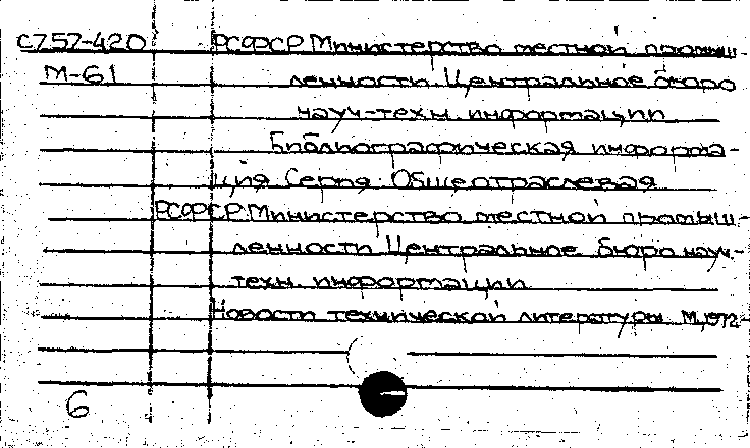 С757-420 РСФСР Министерство местной промыш-
М-61 ленности. Центральное бюро
науч-техн. информации
Библиографическая информа-
ция. Серия: Общеотраслевая
РСФСР. Министерство местной промыш-
ленности Центральное бюро науч.-
техн. информации
Новости технической литературы. М, 1972-
6